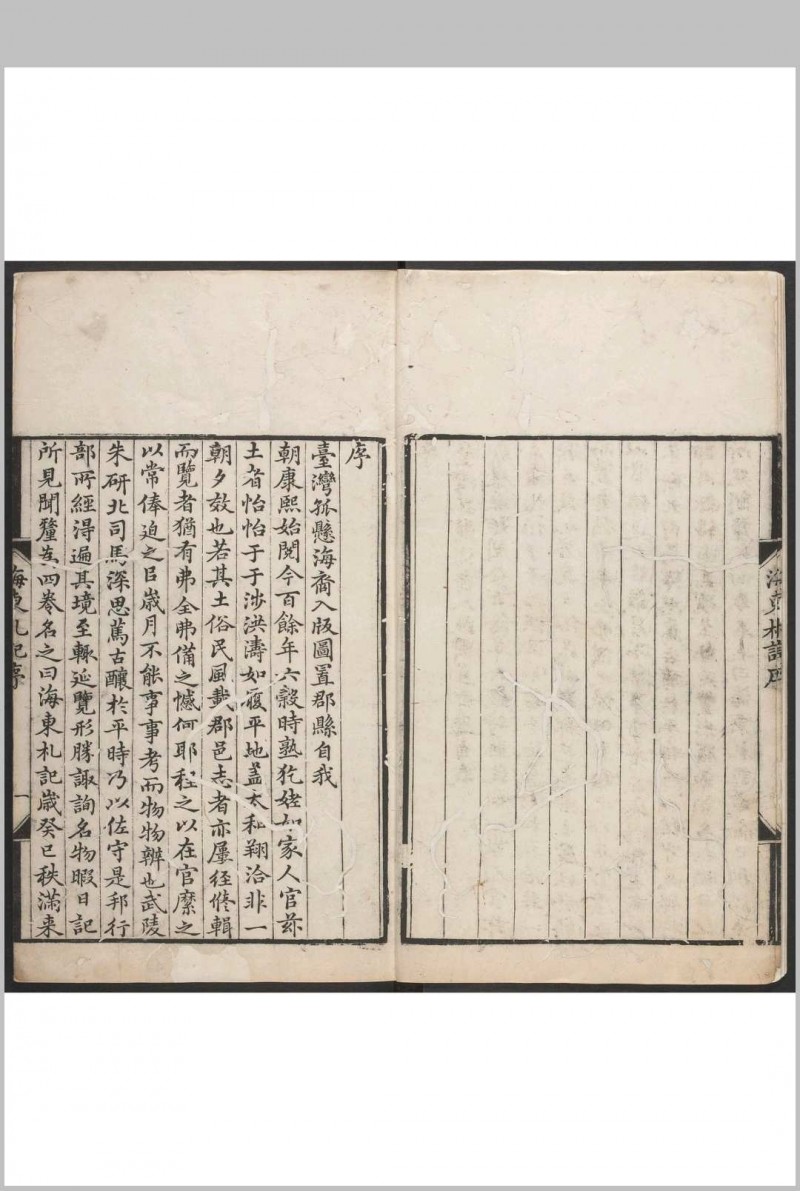 序
臺灣孤懸海裔入版圖置郡縣自我
朝康熙始閱今百餘年六穀時熟犵姥如家人官茲
土者怡怡于于涉洪濤如履平地蓋太和翔洽非一
朝夕效也若其土俗民風載郡邑志者亦屢經修輯
而覽者猶有弗全弗備之憾何耶程之以在官縻之
以常俸迫之㠯歲月不能事事考而物物辨也武陵
朱研北司馬深思篤古釀於平時乃以佐守是邦行
部所經淂遍其境至輒延覽形勝諏詢名物暇日記
所見聞釐為四卷名之曰海東札記歲癸巳秩滿來
海東札記序
一
海東札記序